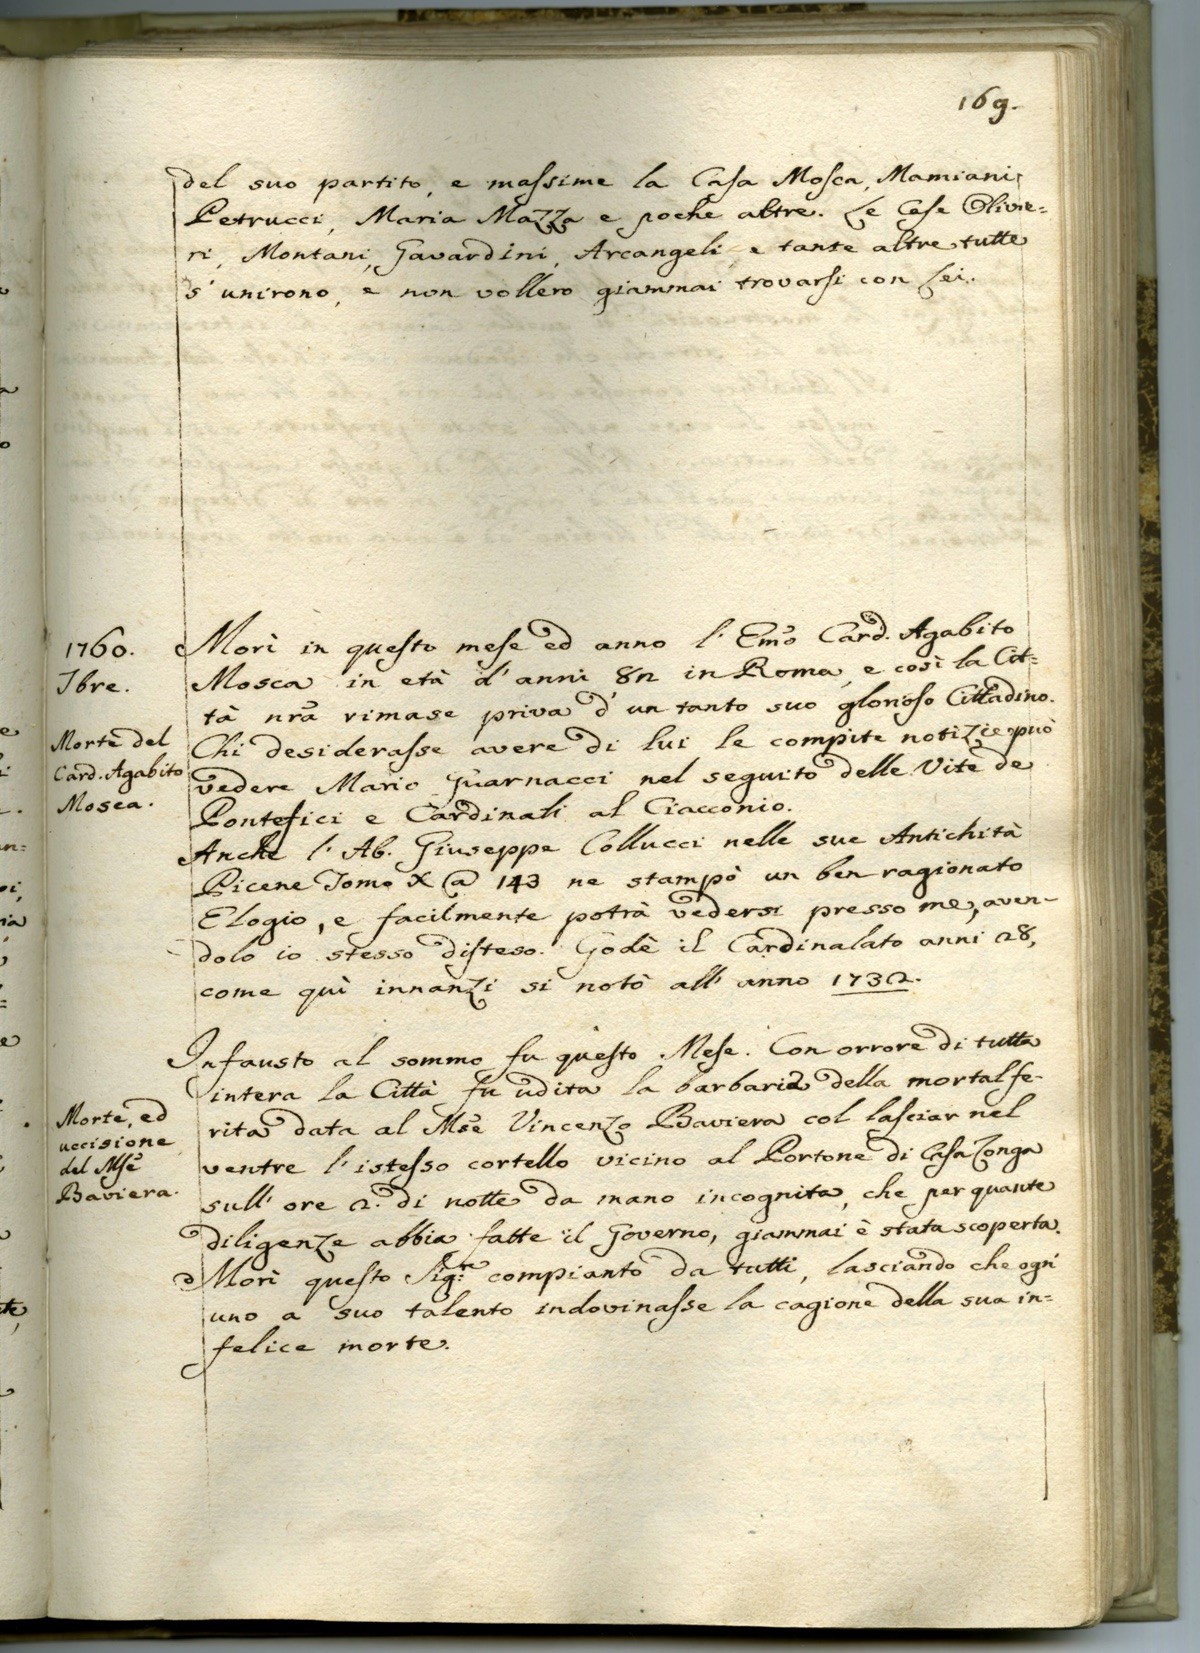 169.
del suo partito, e massime la Casa Mosca, Mamiani,
Petrucci, Maria Mazza e poche altre. Le Case Olivie=
ri, Montani, Gavardini, Arcangeli, e tante altre tutte
s'unirono, e non vollero giammai trovarsi con Lei.
1760.
7bre.
Morte del
Card. Agabito
Mosca.
Morì in questo mese ed anno l'Emo Card. Agabito
Mosca in età d'anni 82 in Roma, e così la Cit=
tà nra rimase priva d'un tanto suo glorioso Cittadino.
Chi desiderasse avere di lui le compite notizie può
vedere Mario Guarnacci nel seguito delle Vite de
Pontefici e Cardinali al Ciacconio.
Anche l'Ab. Giuseppe Collucci nelle sue Antichità
Picene Tomo X @ 143 ne stampò un ben ragionato
Elogio, e facilmente potrà vedersi presso me, aven-
dolo io stesso disteso. Godè il Cardinalato anni 28,
come quì innanzi si notò all'anno 1732.
Morte, ed
uccisione
del Mse
Baviera.
Infausto al sommo fu questo Mese. Con orrore di tutta
intera la Città fu udita la barbaria della mortal fe-
rita data al Mse Vincenzo Baviera col lasciar nel
ventre l'istesso cortello vicino al Portone di Casa Zonga
sull'ore 2. di notte da mano incognita, che per quante
diligenze abbia fatte il Governo, giammai è stata scoperta.
Morì questo Sigre compianto da tutti, lasciando che ogn'
uno a suo talento indovinasse la cagione della sua in=
felice morte.